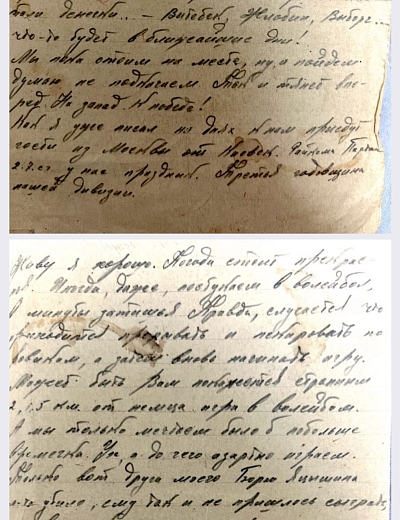 — Витебск, Жлобин, Выборг...
что-то будет в ближайшие дни!
Мы пока стоим на месте, ну, а пойдем
думаю не подкачаем. Так и тянет впе-
ред. На запад к победе!
Как я уже писал на днях к нам приедут
гости из Москвы от Киевск. Райкома Партии
2.7. у нас праздник. Третья годовщина
нашей дивизии.
Живу я хорошо. Погода стоит прекрас-
ная. Иногда, даже, постукаем в волейбол,
в минуты затишья. Правда, случается что
приходится прерывать и пикировать по
ровикам, а затем вновь начинать игру.
Может быть Вам покажется странным
2, 1,5 км. от немца игра в волейбол.
А мы только мечтаем было б побольше
времечка. Ух, а до чего азартно играем.
Только вот друга моего Борю Яцышина
убило, ему так и не пришлось сыграть,